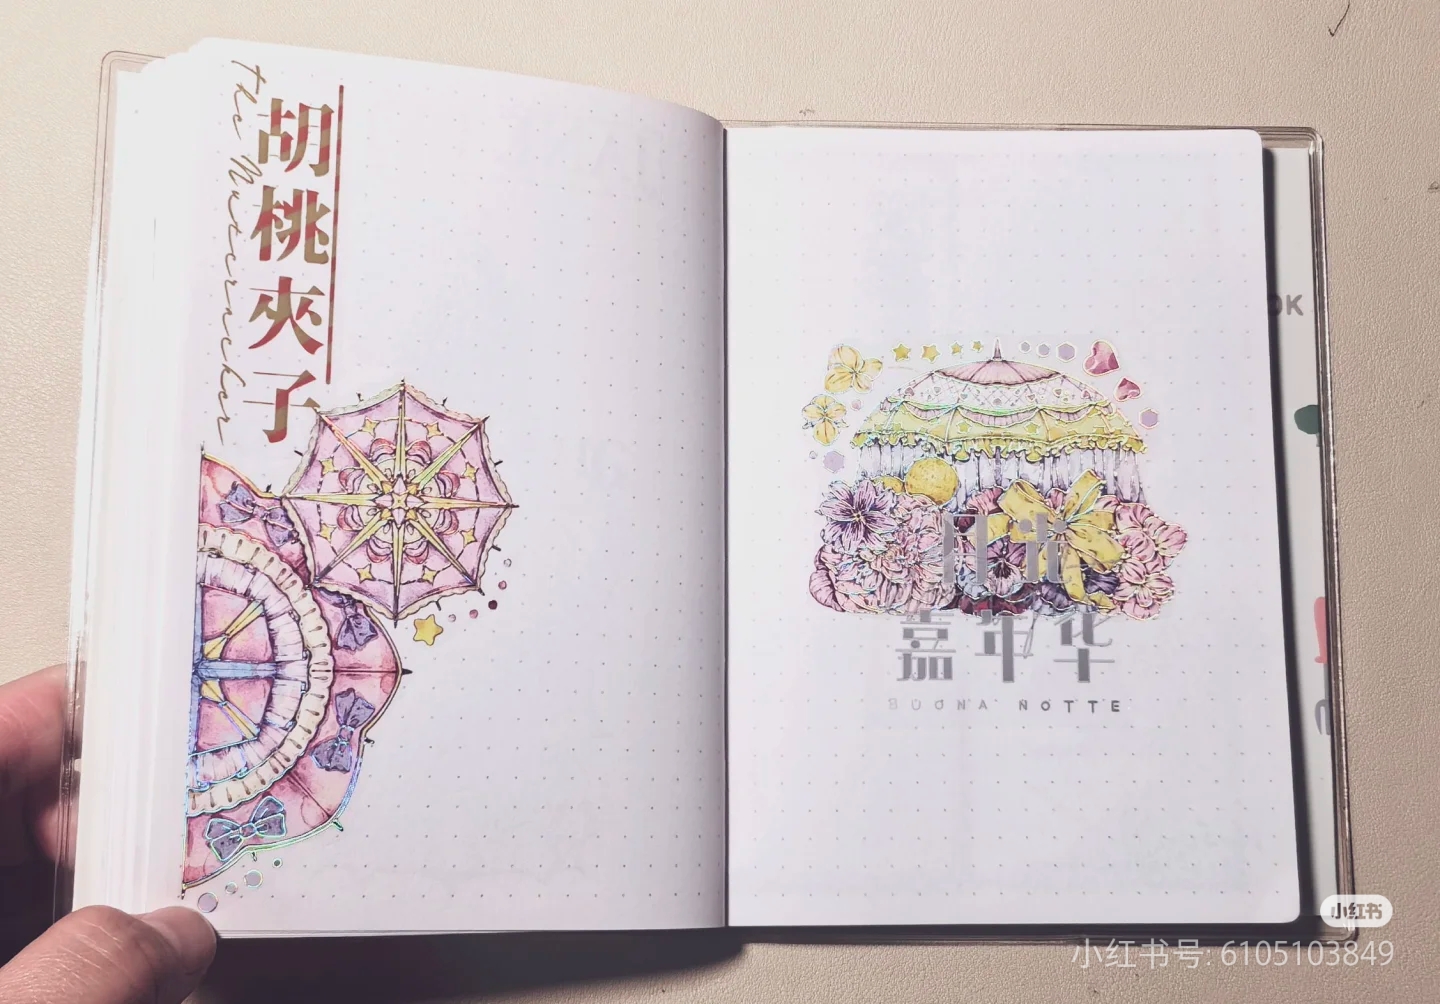 胡桃夾子
The Nutcracker
月光
嘉年华
BUONA NOTTE
OK
小红书
小红书号: 6105103849